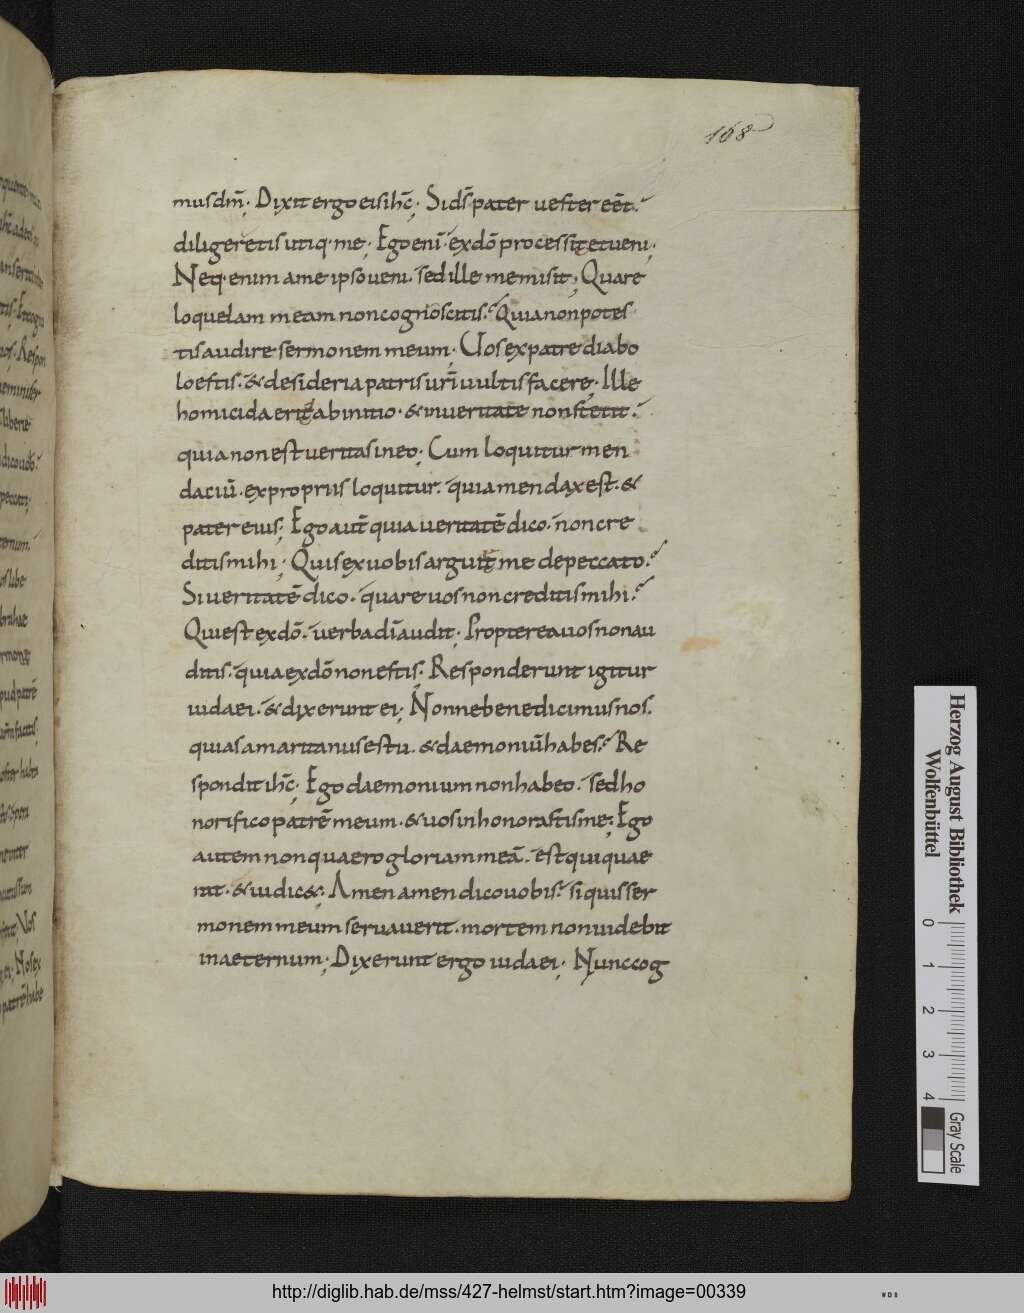 168
musdm̄; Dixit ergo eis ih̄c; Si ds̄ pater uester eēt.
diligeretis utiq· me; Ego eni̅· ex dō processi et ueni;
Neq· enim a me ipso ueni· sed ille me misit; Quare
loquelam meam non cognoscitis? Quia non potes
tis audire sermonem meum; Uos ex patre diabo
lo estis· & desideria patris uri̅ uultis facere; Ille
homicida erat ab initio· & in ueritate non stetit.
quia non est ueritas in eo; Cum loquitur men
daciū· ex propriis loquitur· quia mendax est· &
pater eius; Ego aut̄ quia ueritatē dico· non cre
ditis mihi; Quis ex uobis arguit me de peccato?
Si ueritatē dico· quare uos non creditis mihi?
Qui est ex dō· uerba dī audit; Propterea uos non au
ditis· quia ex dō non estis; Responderunt igitur
iudaei· & dixerunt ei; Nonne bene dicimus nos·
quia samaritanus es tu· & daemoniū habes? Re
spondit ih̄c; Ego daemonium non habeo· sed ho
norifico patrē meum· & uos inhonorastis me; Ego
autem non quaero gloriam meā· est qui quae
rat· & iudic&; Amen amen dico uobis· si quis ser
monem meum seruauerit· mortem non uidebit
in aeternum; Dixerunt ergo iudaei; Nunc cog
Herzog August Bibliothek
Wolfenbüttel
0 1 2 3 4
Gray Scale
http://diglib.hab.de/mss/427-helmst/start.htm?image=00339